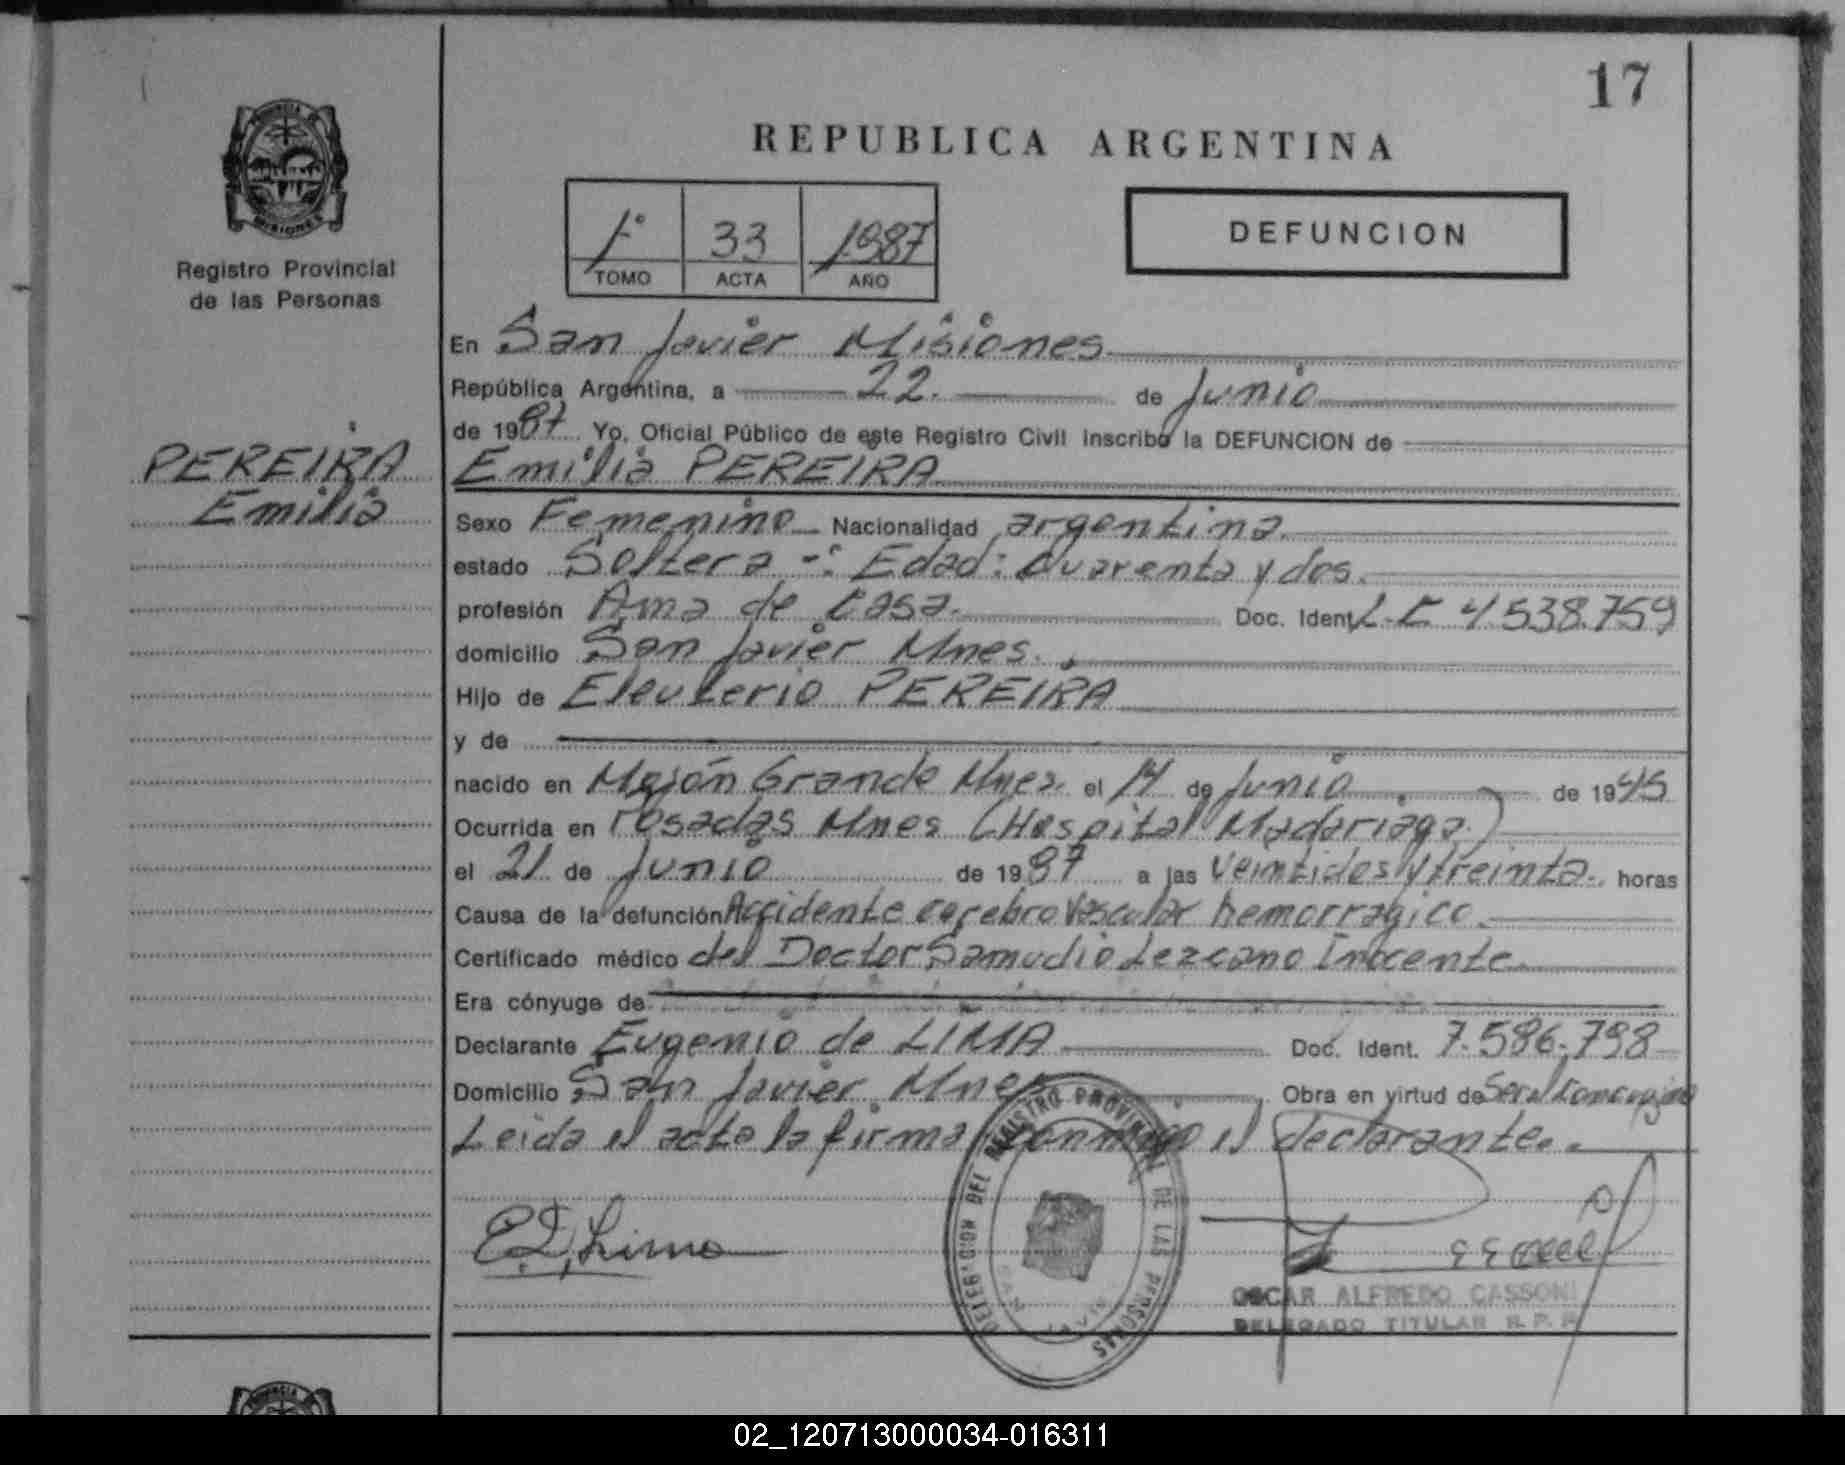 17
REPUBLICA ARGENTINA
PROVINCIA DE MISIONES
Registro Provincial
de las Personas
1º 33 1987
TOMO ACTA AÑO
DEFUNCION
En San Javier Misiones
República Argentina, a 22 de Junio
de 1987 Yo, Oficial Público de este Registro Civil Inscribo la DEFUNCION de
PEREIRA
Emilia
Emilia PEREIRA
Sexo Femenino Nacionalidad argentina
estado Soltera -: Edad: Cuarenta y dos.
profesión Ama de Casa. Doc. Ident. L.C 4.538.759
domicilio San Javier Mnes.
Hijo de Eleuterio PEREIRA
y de
nacido en Mojón Grande Mnes. el 14 de Junio de 1945
Ocurrida en Posadas Mnes (Hospital Madariaga.)
el 21 de Junio de 1987 a las veintidos y treinta. horas
Causa de la defunción Accidente cerebro vascular hemorragico.
Certificado médico del Doctor Samudio Lezcano Inocente.
Era cónyuge de
Declarante Eugenio de LIMA Doc. Ident. 7.586.798
Domicilio San Javier Mnes Obra en virtud de Ser el
Leida el acta la firma conmigo el declarante.
DELEGACION DEL REGISTRO PROVINCIAL DE LAS PERSONAS
SAN JAVIER
E D Lima
OSCAR ALFREDO CASSONI
DELEGADO TITULAR R. P. P.
02_120713000034-016311